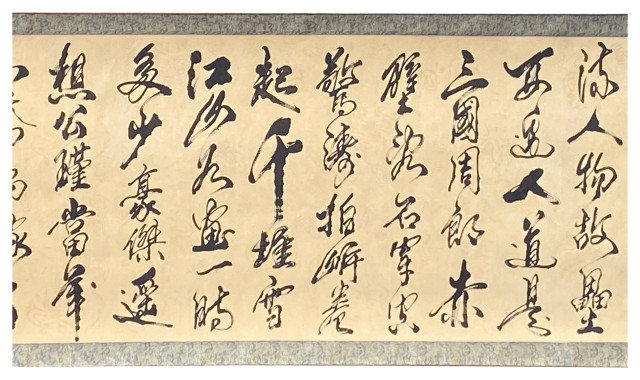 流人物故壘
西邊人道是
三國周郎赤
壁亂石穿空
驚濤拍岸卷
起千堆雪
江山如畫一時
多少豪傑遥
想公瑾當年